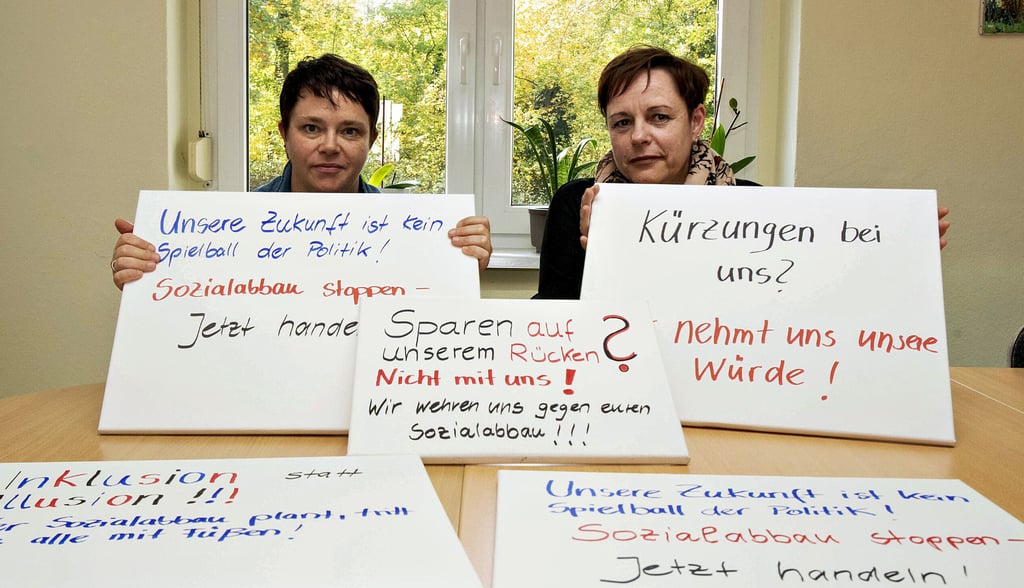 Unsere Zukunft ist kein
Spielball der Politik!
Sozialabbau stoppen –
Jetzt hande
Kürzungen bei
uns?
nehmt uns unsere
Würde!
Sparen auf
unserem Rücken?
Nicht mit uns!
Wir wehren uns gegen euren
Sozialabbau!!!
Inklusion statt
Illusion!!!
er Sozialabbau plant, tritt
alle mit Füßen!
Unsere Zukunft ist kein
Spielball der Politik!
Sozialabbau stoppen –
Jetzt handeln!